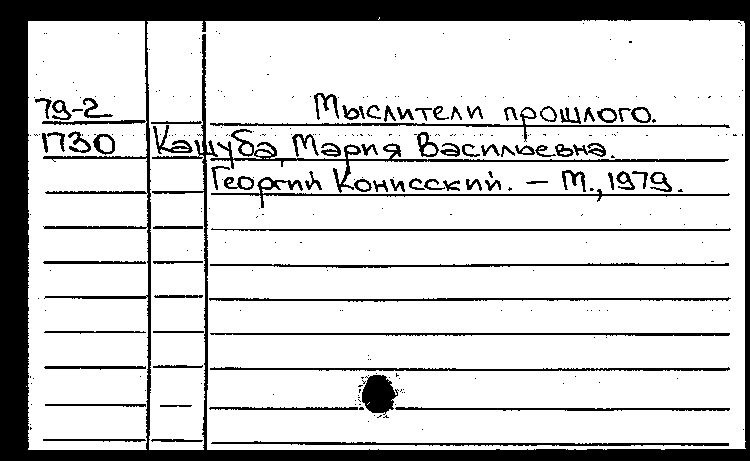 79-2 Мыслители прошлого.
1730 Кашуба, Мария Васильевна.
Георгий Конисский. — М., 1979.